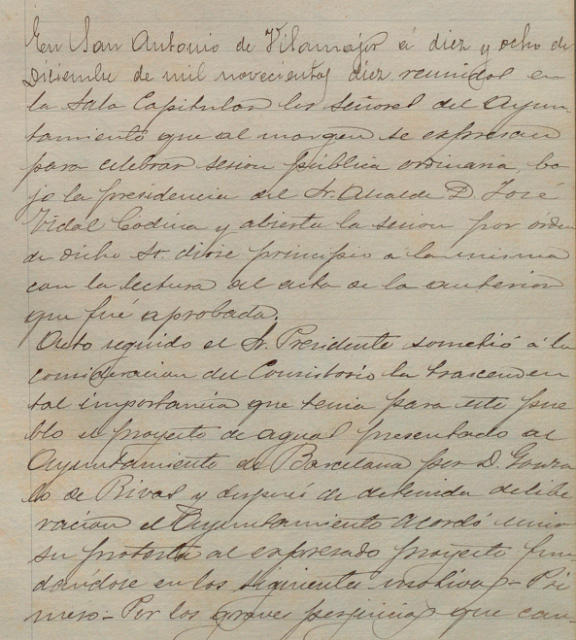 En San Antonio de Vilamajor á diez y ocho de
Diciembre de mil novecientos diez reunidos en
la Sala Capitular los Señores del Ayun-
tamiento que al margen se expresan
para celebrar sesion pública ordinaria, ba
jo la presidencia del Sr. Alcalde D. José
Vidal Codina y abierta la sesion por orden
de dicho Sr. dióse principio a la misma
con la lectura al acta de la anterior
que fué aprobada.
Acto seguido el Sr. Presidente sometió á la
consideracion del Consistorio la trascenden
tal importancia que tenia para este pue
blo el proyecto de aguas presentado al
Ayuntamiento de Barcelona por D. Gonza
lo de Rivas y después de detenida delibe
racion el Ayuntamiento acordó unir
su protesta al expresado proyecto fun
dándose en los siguientes motivos - Pri
mero - Por los graves perjuicios que cau-